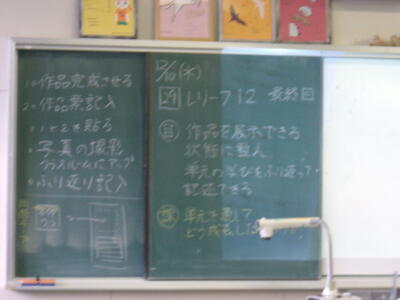 1.作品完成させる
2.作品票記入
1と2を貼る
写真の撮影
クラスルームにアップ
ふり返り記入
12/10(水)
レリーフ12 最終回
作品を展示できる
状態に整え、
単元の学びをふり返って
記述できる
単元を通して
どう成長した